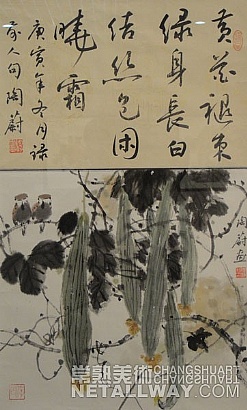 黄花褪束
绿身长白
结丝包困
晓霜
庚寅年冬月录
前人句陶蔚
陶蔚画
常熟美術 CHANGSHUART
NETALLWAY.COM